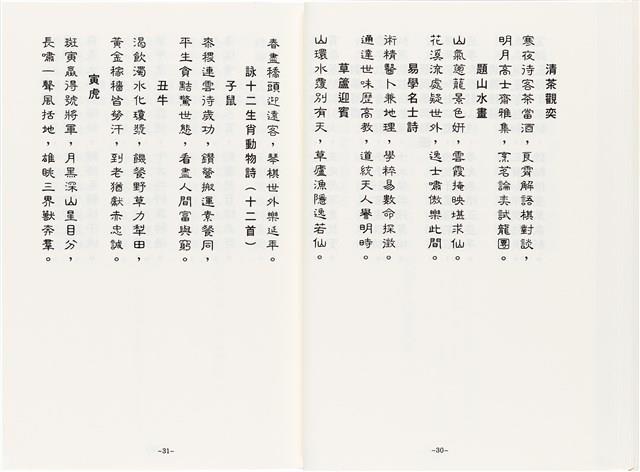 清茶觀奕
寒夜待客茶當酒，良宵解語棋對談，
明月高士齋雅集，烹茗論奕試龍團。
題山水畫
山氣蔥蘢景色妍，雲霞掩映堪求仙。
花溪流處疑世外，逸士嘯傲樂此間。
易學名士詩
術精醫卜兼地理，學粹易數命探微。
通達世味歷高教，道統天人譽明時。
草廬迎賓
山環水靉別有天，草廬漁隱逸若仙。
~30~
春盡橋頭迎遠客，琴棋世外樂延年。
詠十二生肖動物詩（十二首）
子鼠
黍稷連雲待歲功，鑽營搬運素餐同，
平生貪黠驚世態，看盡人間富與窮。
丑牛
渴飲濁水化瓊漿，饑餐野草力犁田，
黃金稼穡皆勞汗，到老猶獻赤忠誠。
寅虎
斑寅贏得號將軍，月黑深山呈目分，
長嘯一聲風括地，雄眺三界獸奔羣。
~31~